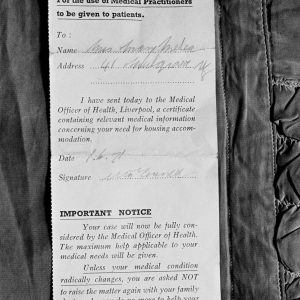 For the use of Medical Practitioners
to be given to patients.
To :
Name
Address 41
I have sent today to the Medical
Officer of Health, Liverpool, a certificate
containing relevant medical information
concerning your need for housing accom-
modation.
Date
Signature
IMPORTANT NOTICE
Your case will now be fully con-
sidered by the Medical Officer of Health.
The maximum help applicable to your
medical needs will be given.
Unless your medical condition
radically changes, you are asked NOT
to raise the matter again with your family